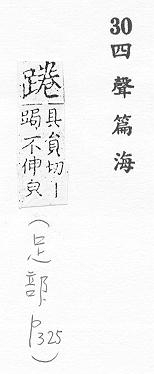 30四聲篇海
踡
具貟切丨
跼不伸皃
(足部 p325)